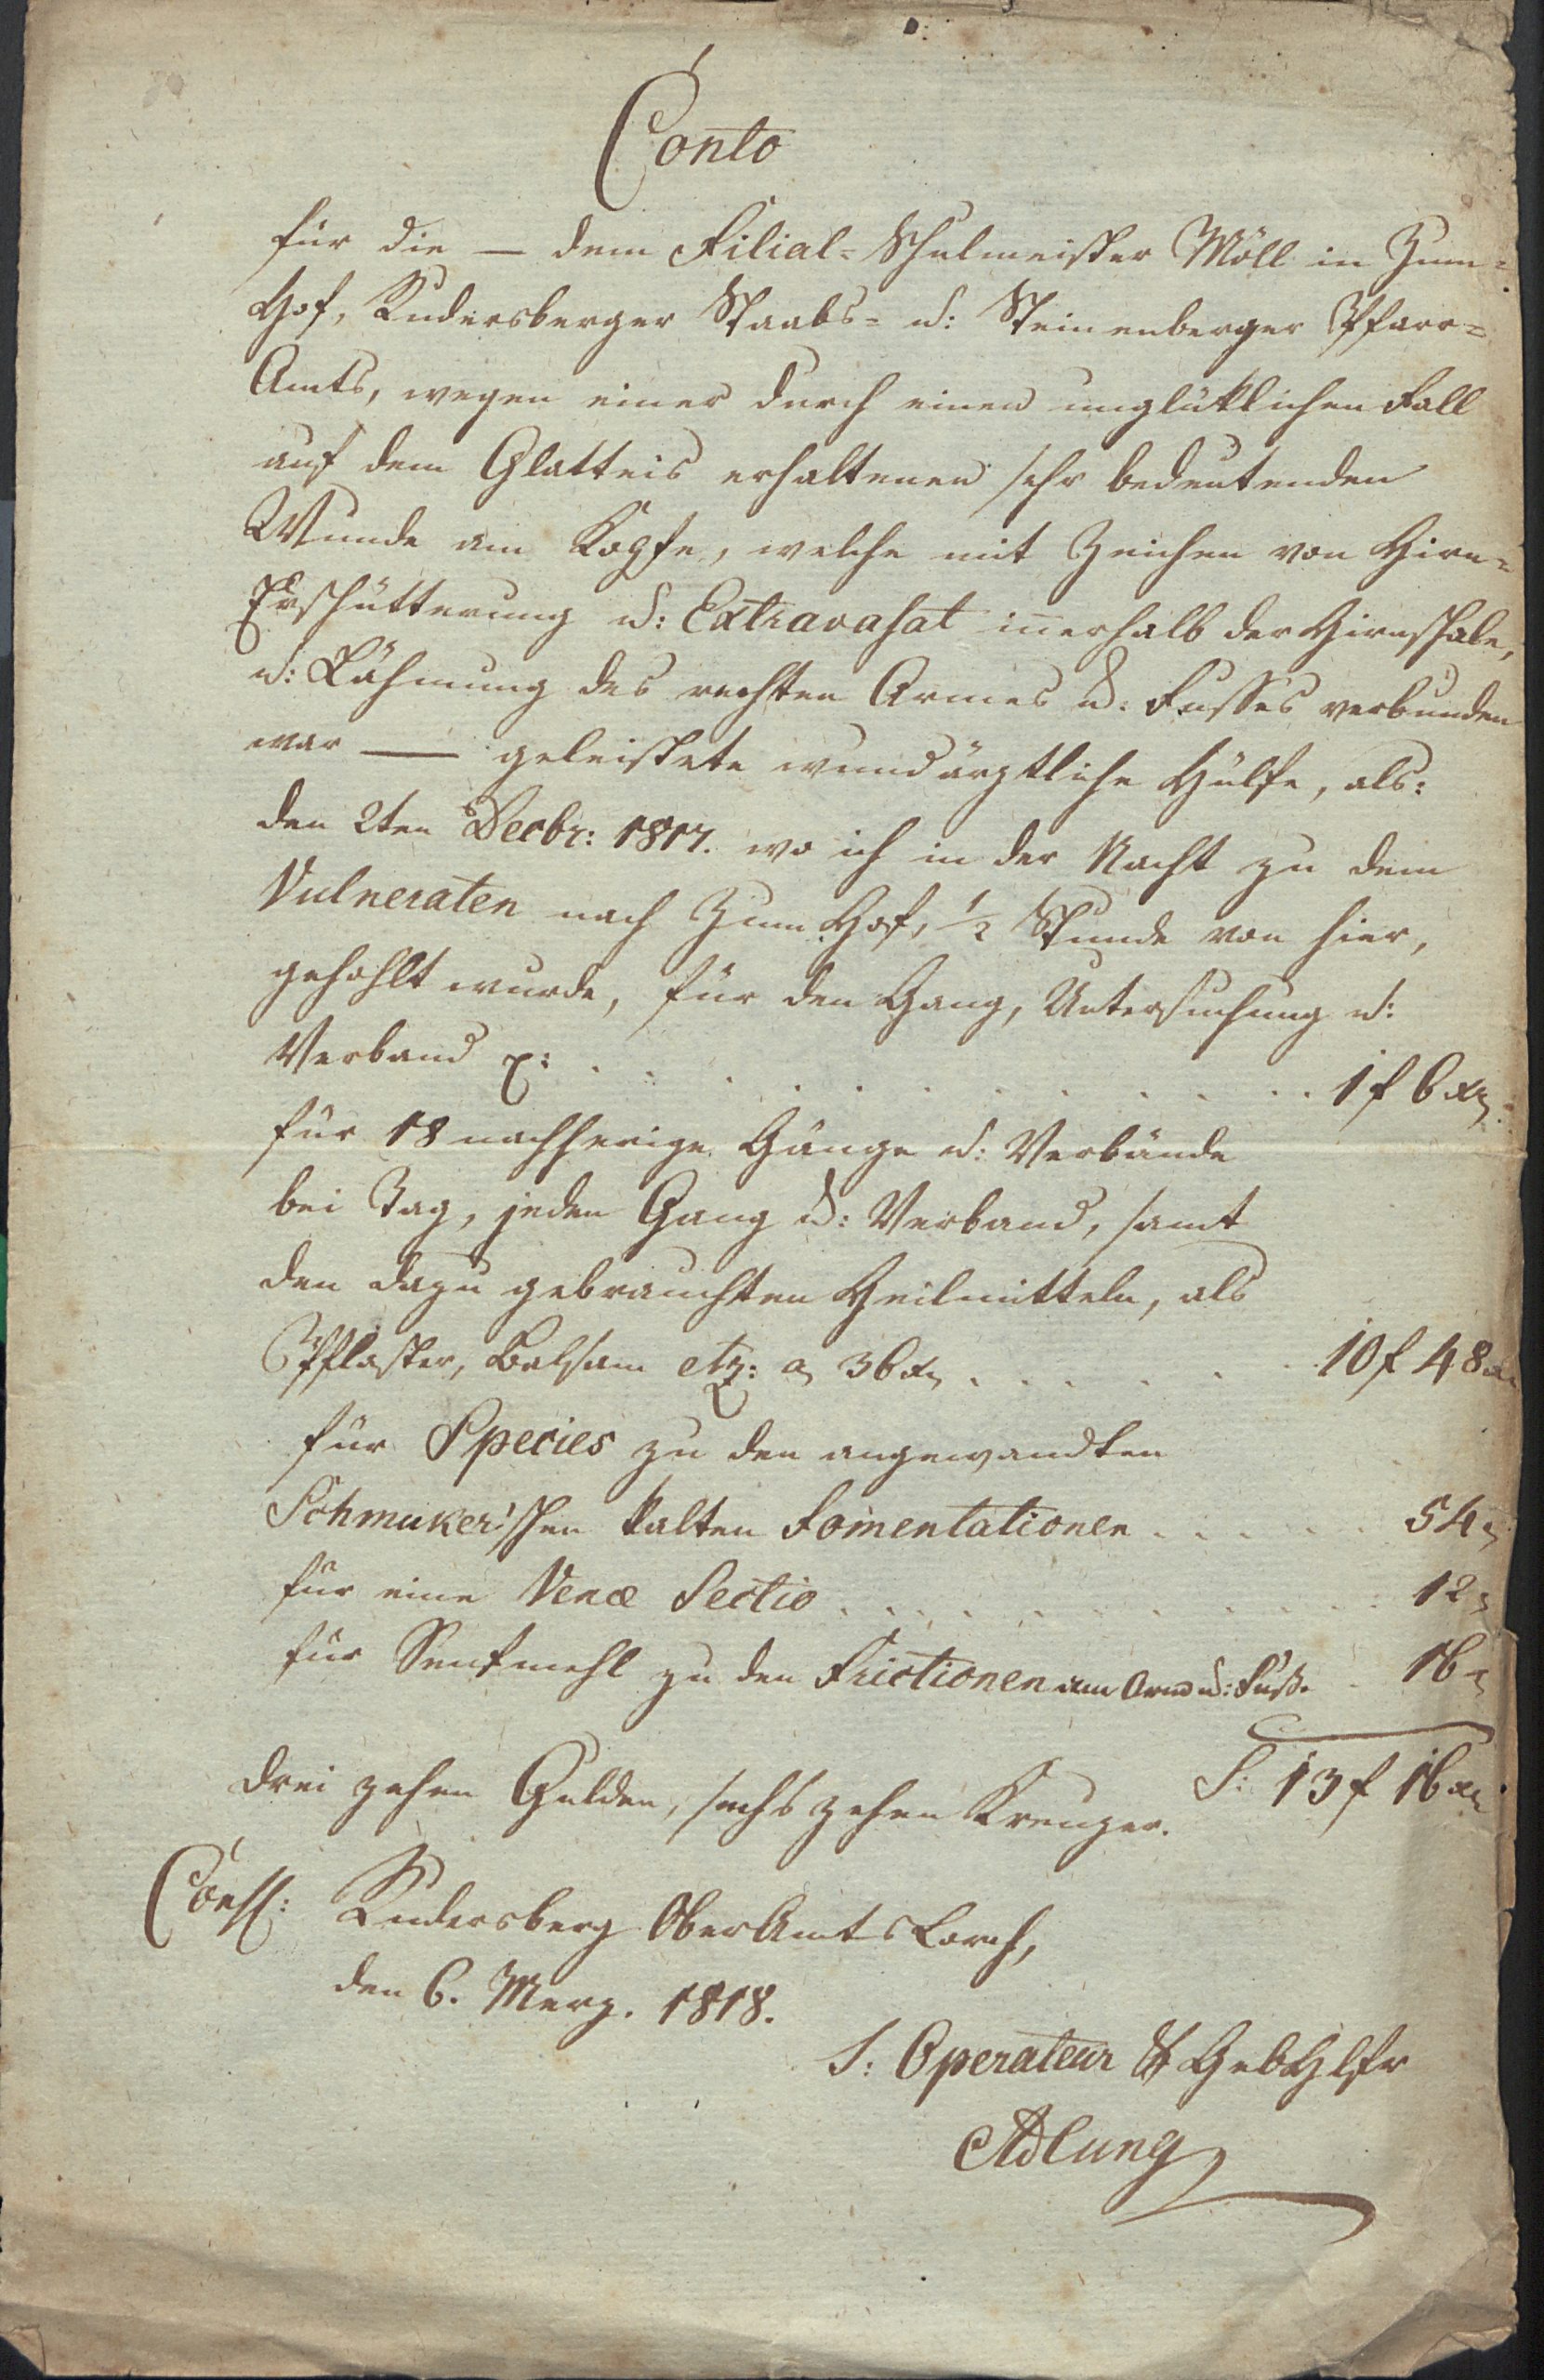 Conto
für die — dem Filial-Schulmeister Möll in Zum-
Hof, Rudersberger Staabs- u: Steinenberger Pfarr-
Amts, wegen einer durch einen unglüklichen Fall
auf dem Glatteis erhaltenen sehr bedeutenden
Wunde am Kopfe, welche mit Zeichen von Hirn-
Erschütterung u: Extravasat in̄erhalb der Hirnschale,
u: Lähmung des rechten Armes u: Fusses verbunden
war — geleistete wundärztliche Hülfe, als:
den 2ten Decbr: 1817. wo ich in der Nacht zu dem
Vulneraten nach Zum Hof, 1/2 Stunde von hier,
gehohlt wurde, für den Gang, Untersuchung u:
Verband . . . . . . . . . . . . 1 f 6 xr.
für 18 nachherige Gänge u: Verbände
bei Tag, jeden Gang u: Verband, samt
den dazu gebrauchten Heilmitteln, als
Pflaster, Balsam etz: a 36 xr . . . . . . 10 f 48 xr
für Species zu den angewandten
Schmuker'schen kalten Fomentationen . . . . . 54
für eine Venæ Sectio . . . . . . . . . . 12
für Senfmehl zu den Frictionen am Arm u: Fuß. . 16
S: 13 f 16 xr
drei zehen Gulden, sechs zehen Kreuzer.
Rudersberg OberAmts Lorch,
den 6. Merz. 1818.
T: Operateur & GebHlfr
Adlung